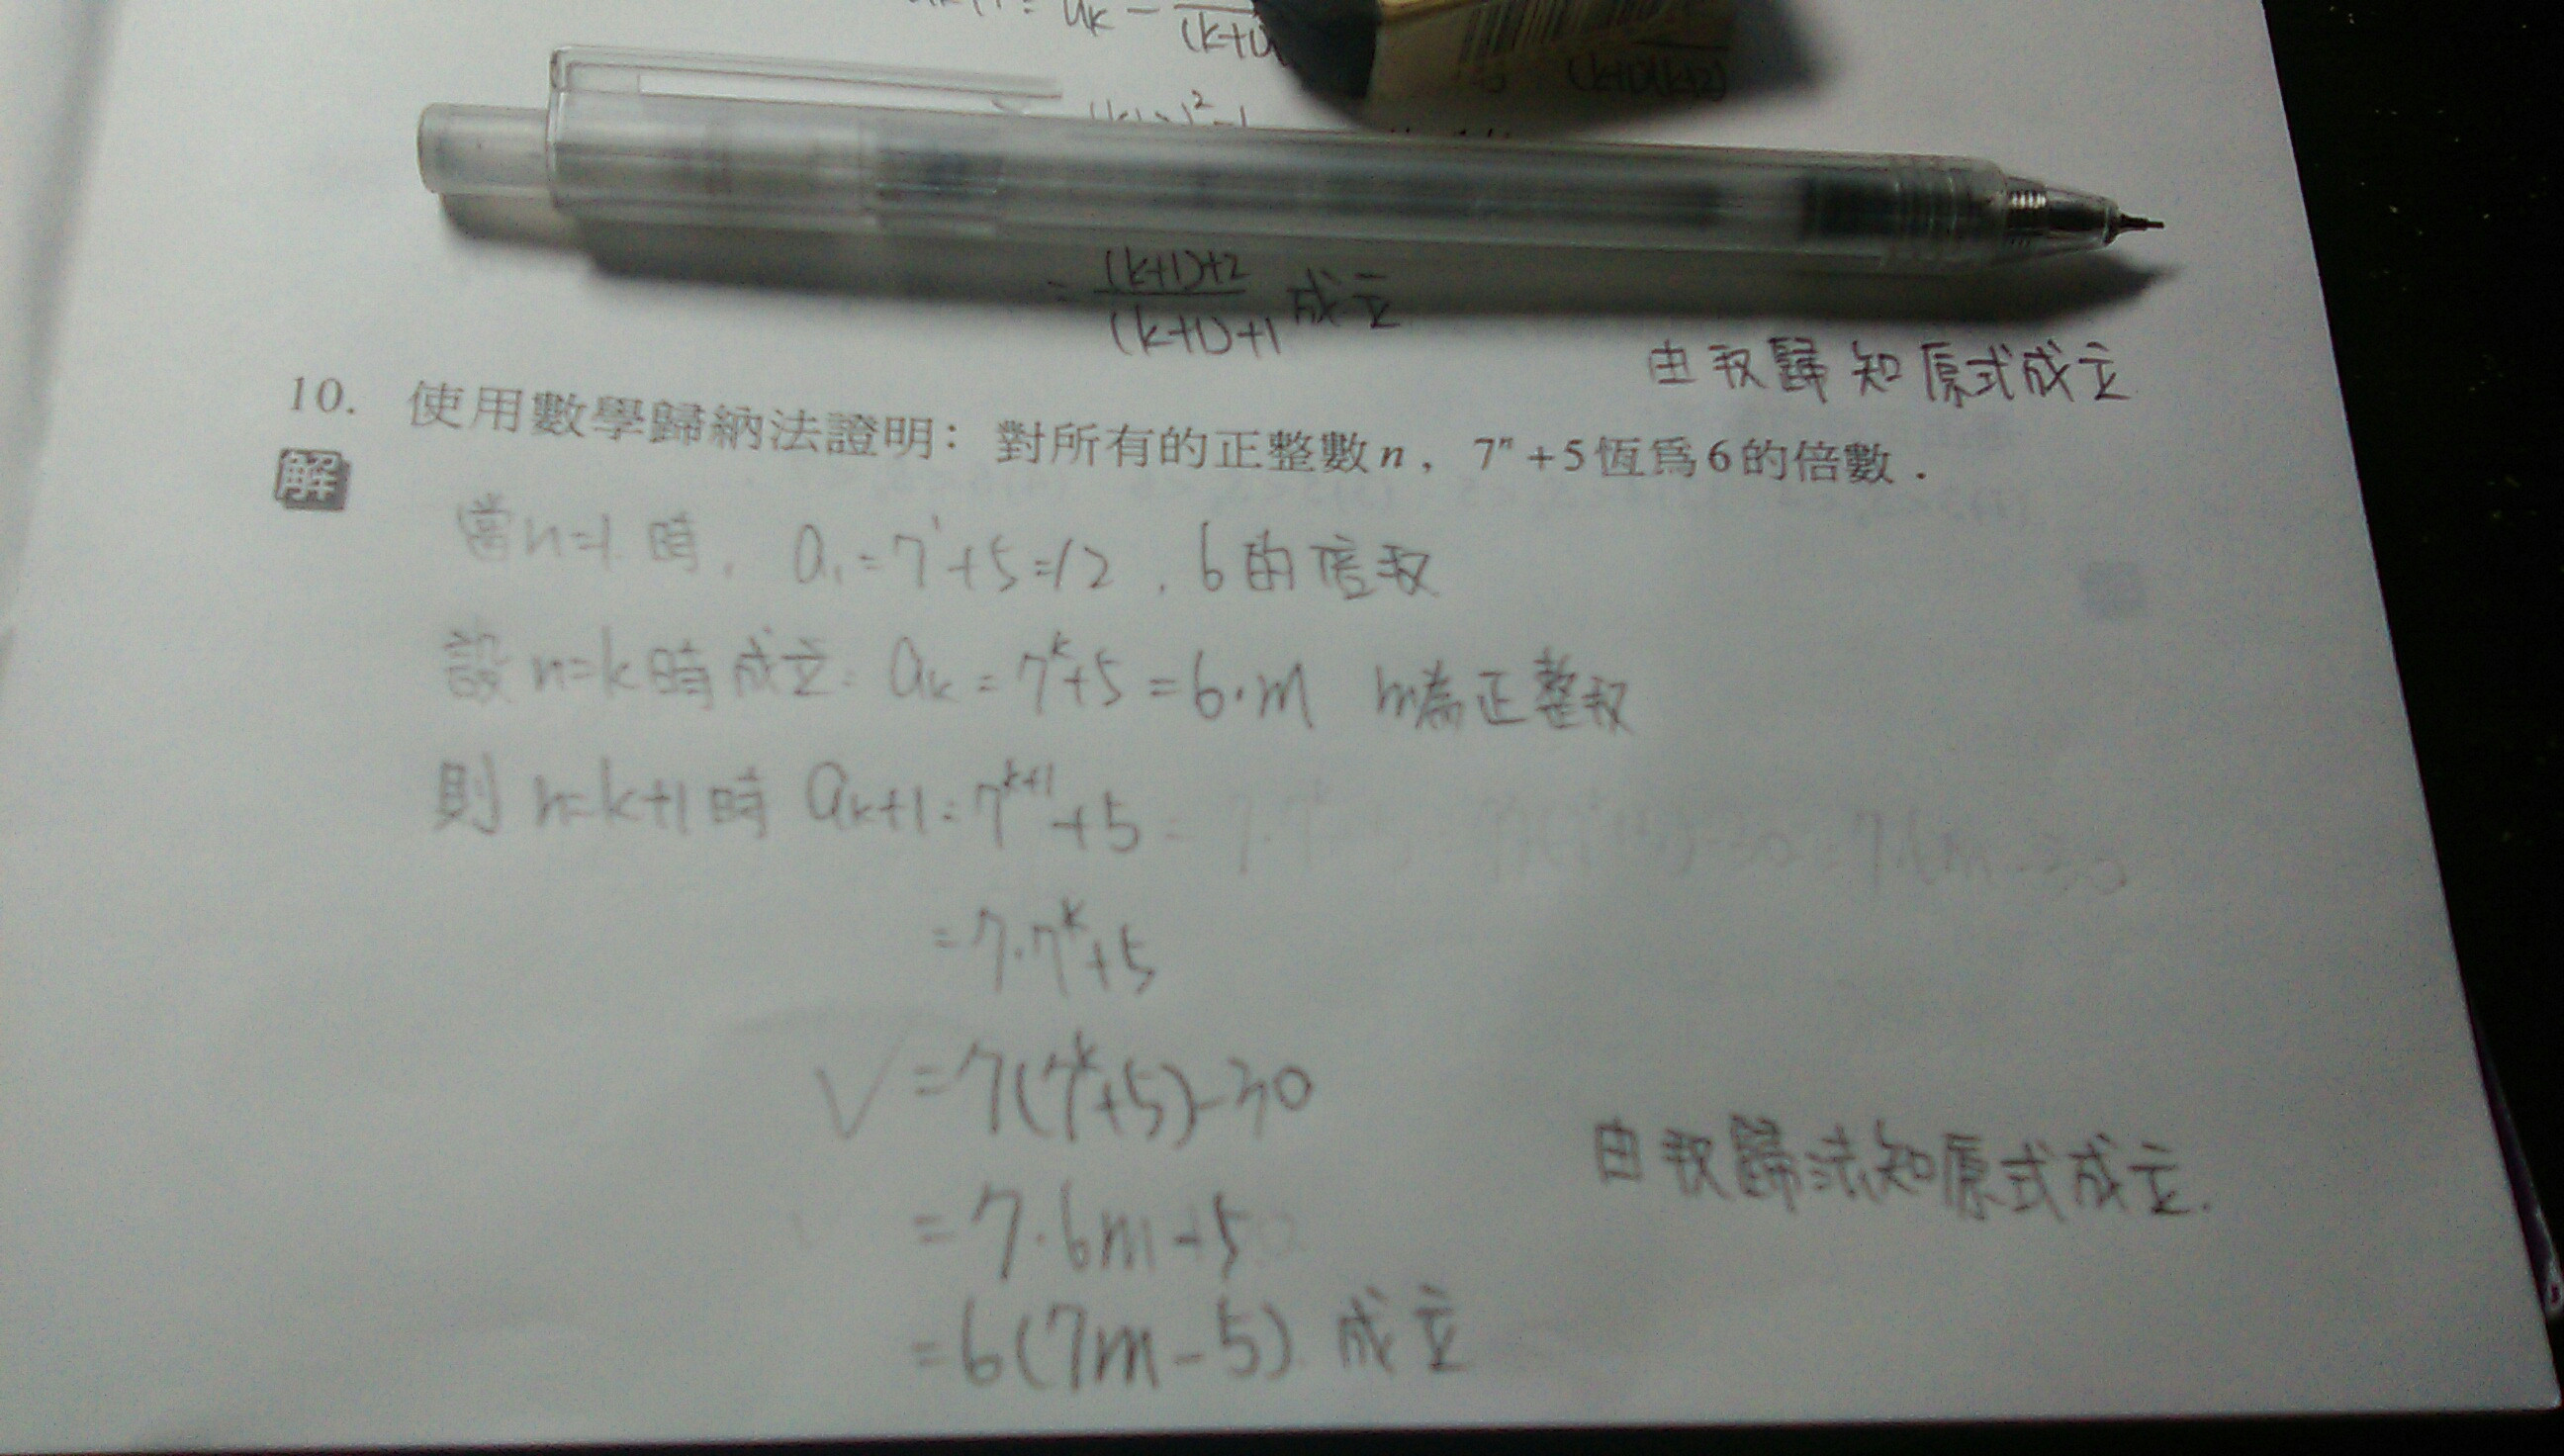 = uk −
(k+1)
(k+1)(k+2)
= (k+1)+2 / (k+1)+1 成立
由数歸知原式成立
10. 使用數學歸納法證明：對所有的正整數n，7ⁿ+5恆爲6的倍數．
解
當n=1時， a₁=7¹+5=12，6的倍数
設n=k時成立：aₖ=7ᵏ+5=6·m m為正整数
則n=k+1時 aₖ+1=7ᵏ⁺¹+5=
=7·7ᵏ+5
√ =7(7ᵏ+5)-30
=7·6m-5
由数歸法知原式成立.
=6(7m-5) 成立